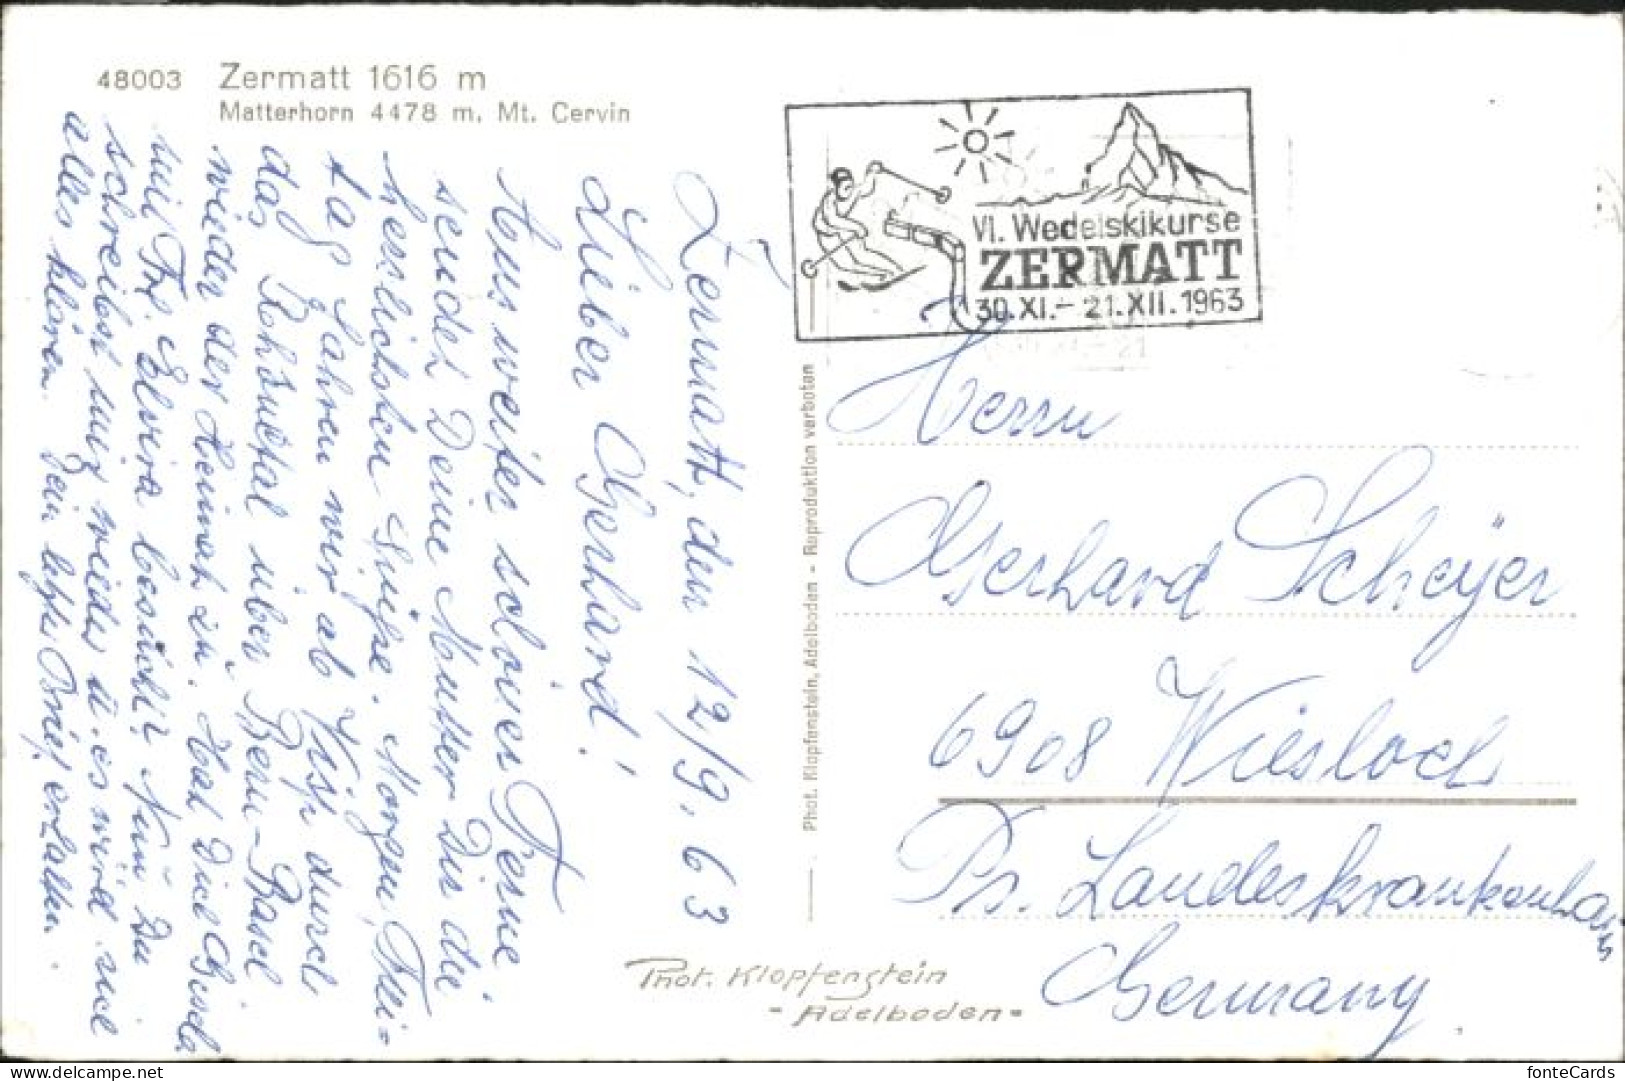 48003 Zermatt 1616 m
Matterhorn 4478 m. Mt. Cervin
VI. Wedelskikurse
ZERMATT
30.XI.– 21.XII.1963
Zermatt, den 12/9. 63
Lieber Gerhard!
Aus weiter schöner Ferne
sendet Deine Mutter Dir die
herzlichsten Grüße. Morgen, Frei=
tag fahren wir ab Visp durch
das Rohnetal über Bern-Basel
wieder der Heimat zu. Hat Dich Gisela
mit Frl. Elvira besucht? Nun Du
schreibst mir wieder u. es wird sich
alles klären. Dein letzter Brief erhalten.
Phot. Klopfenstein, Adelboden - Reproduktion verboten
Herrn
Gerhard Scheyer
6908 Wiesloch
Ps. Landeskrankenhaus
Germany
Phot. Klopfenstein
- Adelboden -
delcampe.net
fonteCards